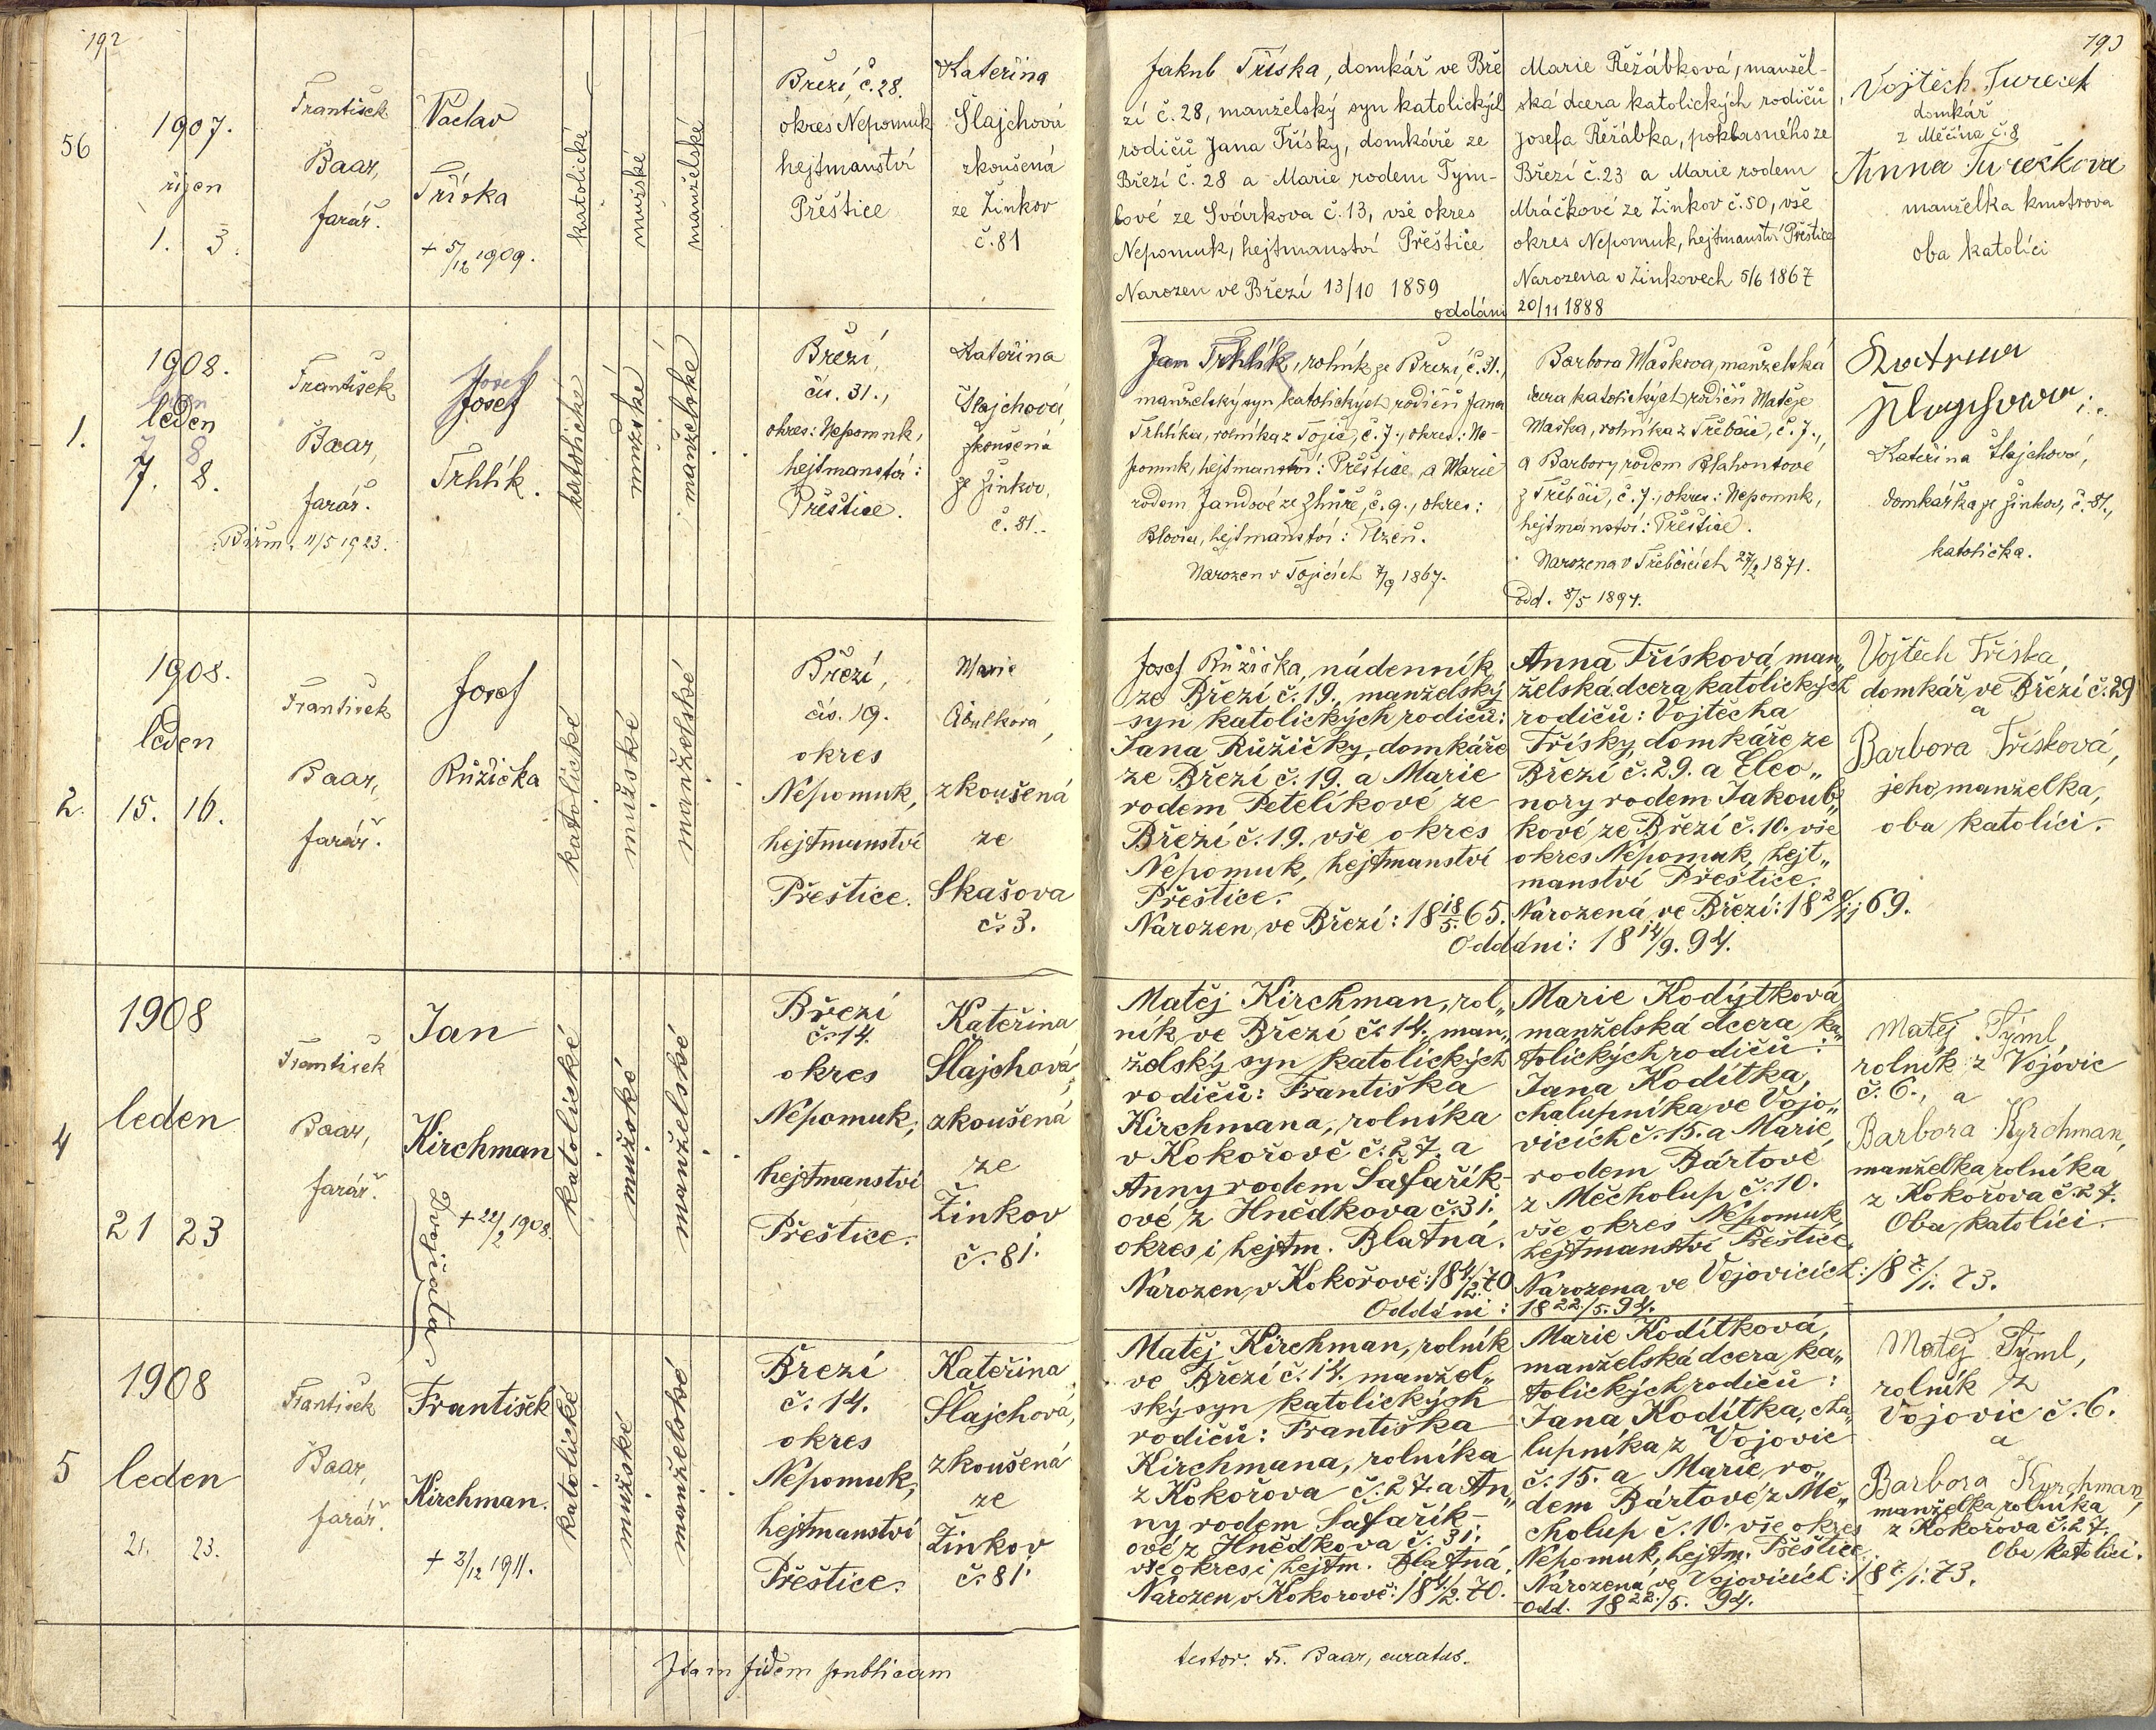 192
56
1907.
říjen
1. 3.
František
Baar,
farář.
Václav
Tříska
+ 5/12 1909.
katolické
mužské
manželské
Březí, č. 28.
okres Nepomuk
hejtmanství
Přeštice
Kateřina
Šlajchová
zkoušená
ze Žinkov
č. 81
1.
1908.
leden
7. 8.
František
Baar,
farář.
Biřm. 11/5 1923.
Josef
Josef
Trhlík.
katolické
mužské
manželské
Březí,
čís. 31.,
okres: Nepomuk,
hejtmanství:
Přeštice.
Kateřina
Šlajchová,
zkoušená
ze Žinkov,
č. 81.
2.
1908.
leden
15. 16.
František
Baar,
farář.
Josef
Růžička
katolické
mužské
manželské
Březí,
čís. 19.
okres
Nepomuk,
hejtmanství
Přeštice.
Marie
Cibulková,
zkoušená
ze
Skašova
č. 3.
4
1908
leden
21 23
František
Baar,
farář.
Jan
Kirchman
+ 22/2 1908.
Dvojčata
katolické
mužské
manželské
Březí
č. 14.
okres
Nepomuk,
hejtmanství
Přeštice.
Kateřina
Šlajchová,
zkoušená
ze
Žinkov
č. 81.
5
1908
leden
21. 23.
František
Baar,
farář.
František
Kirchman.
+ 2/12 1911.
katolické
mužské
manželské
Březí
č. 14.
okres
Nepomuk,
hejtmanství
Přeštice.
Kateřina
Šlajchová,
zkoušená
ze
Žinkov
č. 81.
fidem publicam
193
Jakub Tříska, domkář ve Bře
zí č. 28, manželský syn katolických
rodičů Jana Třísky, domkáře ze
Březí č. 28 a Marie rodem Tým-
lové ze Svárkova č. 13, vše okres
Nepomuk, hejtmanství Přeštice
Narozen ve Březí 13/10 1859
oddáni
Marie Řežábková, manžel-
ská dcera katolických rodičů
Josefa Řežábka, pokbasného ze
Březí č. 23 a Marie rodem
Mráčkové ze Žinkov č. 50, vše
okres Nepomuk, hejtmanství Přeštice
Narozena v Žinkovech 5/6 1867
20/11 1888
Vojtěch Tureček
domkář
z Měčína č. 8
Anna Turečkova
manželka kmotrova
oba katolíci
Jan Trhlík, rolník ze Březí, č. 31.,
manželský syn katolických rodičů Jana
Trhlíka, rolníka z Tojic, č. 7., okres: Ne-
pomuk, hejtmanství: Přeštice, a Marie
rodem Jandové ze Zhůře, č. 9., okres:
Blovice, hejtmanství: Plzeň.
Narozen v Tojicích 7/9 1867.
Barbora Mašková, manželská
dcera katolických rodičů Matěje
Maška, rolníka z Třebčic, č. 7.,
a Barbory rodem Blahoutové
z Třebčic, č. 7., okres: Nepomuk,
hejtmanství: Přeštice.
Narozena v Třebčicích 27/2 1871.
Odd. 8/5 1894.
Kateřina Šlajchová,
domkářka ze Žinkov, č. 81.,
katolička.
Josef Růžička, nádenník
ze Březí č. 19., manželský
syn katolických rodičů:
Jana Růžičky, domkáře
ze Březí č. 19. a Marie
rodem Petelíkové ze
Březí č. 19. vše okres
Nepomuk, hejtmanství
Přeštice.
Narozen ve Březí: 18 18/5. 65.
Anna Třísková, man„
želská dcera katolických
rodičů: Vojtěcha
Třísky, domkáře ze
Březí č. 29. a Eleo„
nory rodem Jakoub„
kové ze Březí č. 10. vše
okres Nepomuk, hejt„
manství Přeštice.
Narozená ve Březí: 18 20/11 69.
Oddáni: 18 14/9. 94.
Vojtěch Tříska,
domkář ve Březí č. 29
a
Barbora Třísková,
jeho manželka,
oba katolíci.
Matěj Kirchman, rol„
ník ve Březí č. 14., man„
želský syn katolických
rodičů: Františka
Kirchmana, rolníka
v Kokořově č. 27. a
Anny rodem Šafařík-
ové z Hnědkova č. 31.
okres i hejtm. Blatná.
Narozen v Kokořově: 18 4/2. 70
Oddáni:
Marie Kodýtková
manželská dcera ka„
tolických rodičů:
Jana Kodítka,
chalupníka ve Vojo„
vicích č. 15. a Marie,
rodem Bártové
z Měcholup č. 10.
vše okres Nepomuk,
hejtmanství Přeštice,
Narozena ve Vojovicích: 18 7/1. 73.
18 22./5. 94.
Matěj Týml
rolník z Vojovic
č. 6., a
Barbora Kyrchman,
manželka rolníka
z Kokořova č. 27.
Oba katolíci.
Matěj Kirchman, rolník
ve Březí č. 14. manžel„
ský syn katolických
rodičů: Františka
Kirchmana, rolníka
z Kokořova č. 27. a An„
ny rodem Šafařík-
ové z Hnědkova č. 31.
vše okres i hejtm. Blatná.
Narozen v Kokorově: 18 4./2. 70.
Marie Kodítková,
manželská dcera ka„
tolických rodičů:
Jana Kodítka, cha„
lupníka z Vojovic
č. 15. a Marie, ro„
dem Bártové z Mě„
cholup č. 10. vše okres
Nepomuk, hejtm. Přeštice.
Narozená ve Vojovicích: 18 7/1. 73.
Odd. 18 22./5. 94.
Matěj Týml,
rolník z
Vojovic č. 6.
a
Barbora Kyrchman,
manželka rolníka
z Kokořova č. 27.
Oba katolíci.
testor. Fr. Baar, curatus.